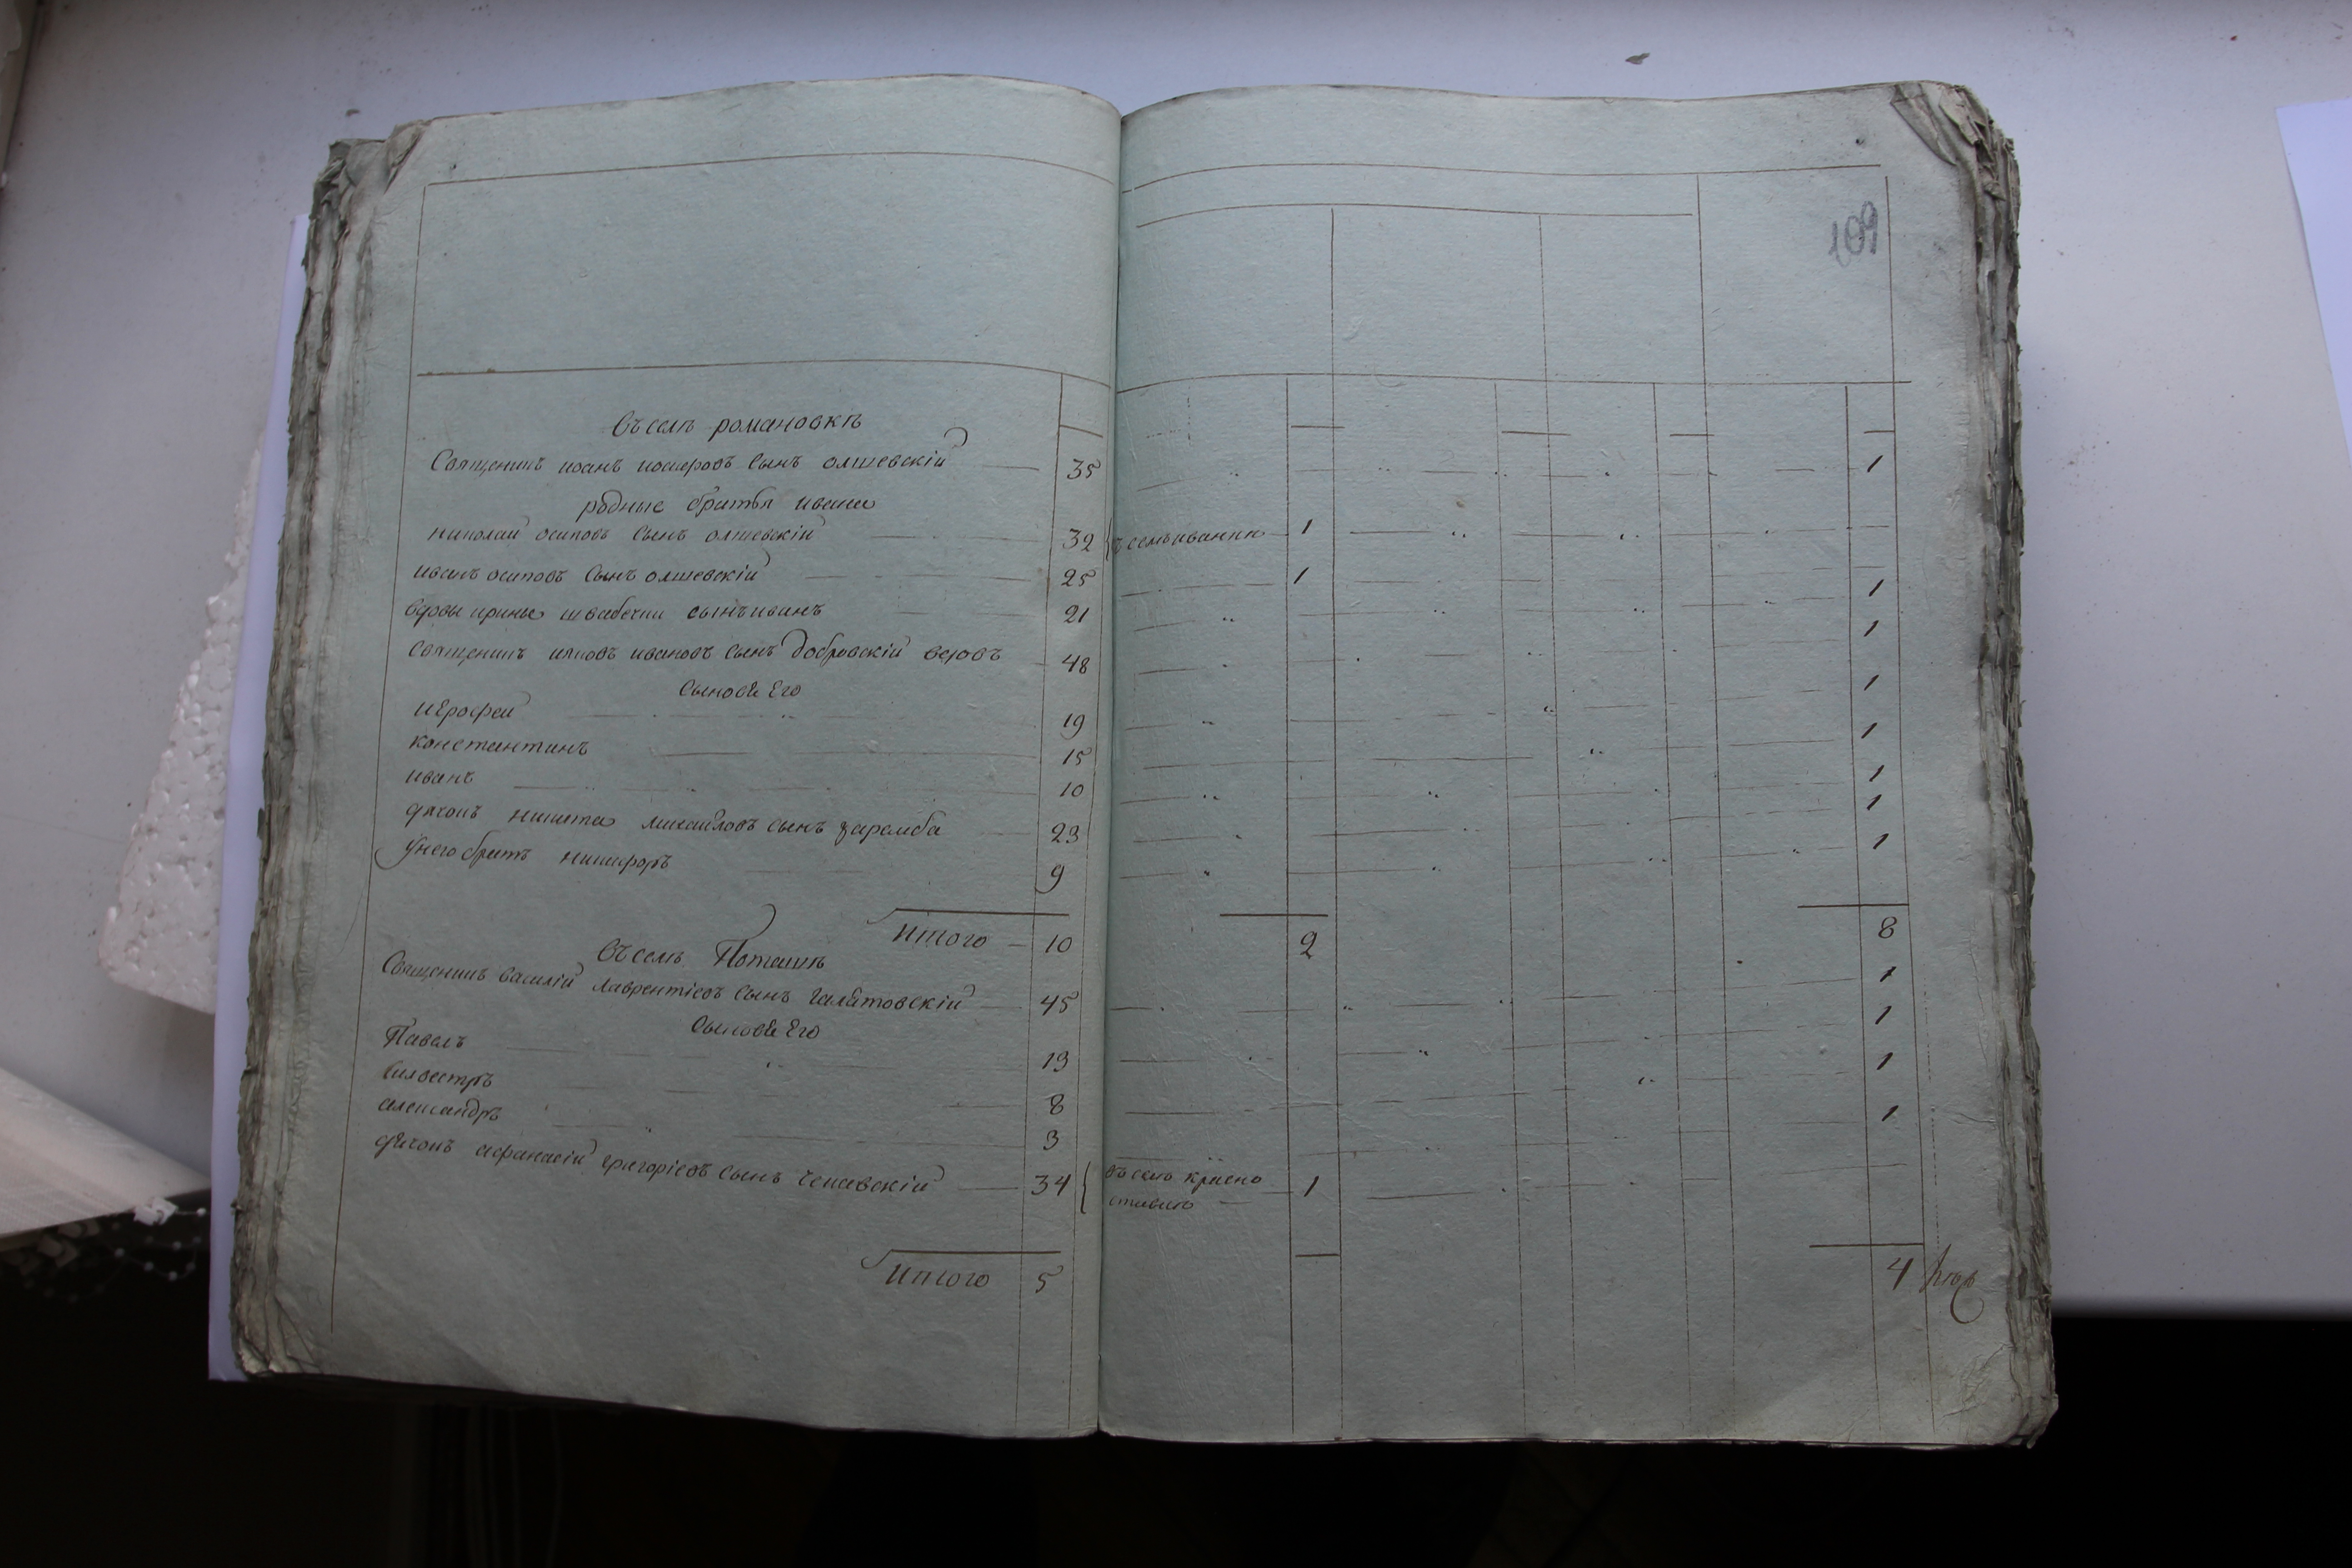 109
Въ селѣ романовкѣ
Священникъ иоанъ иосифовъ сынъ олшевскій 35 1
родные братья ивана
николай осиповъ сынъ олшевскій 32 въ селѣ 1
иванъ осиповъ сынъ олшевскій 25 1
вдовы ирины сынъ иванъ 21 1
священникъ яковъ ивановъ сынъ добровскій вдовъ 48 1
сыновья Его
иерофей 19 1
константинъ 15 1
иванъ 10 1
дячокъ никита михайловъ сынъ заремба 23 1
у него братъ никифоръ 9 1
Итого 10 2 8
Въ селѣ Поташнѣ
Священникъ василій лаврентіевъ сынъ галятовскій 45 1
сыновья Его
Павелъ 13 1
силвестръ 8 1
александръ 3 1
дячокъ афанасій григоріевъ сынъ 34 въ селѣ красно
ставкѣ 1
Итого 5 4